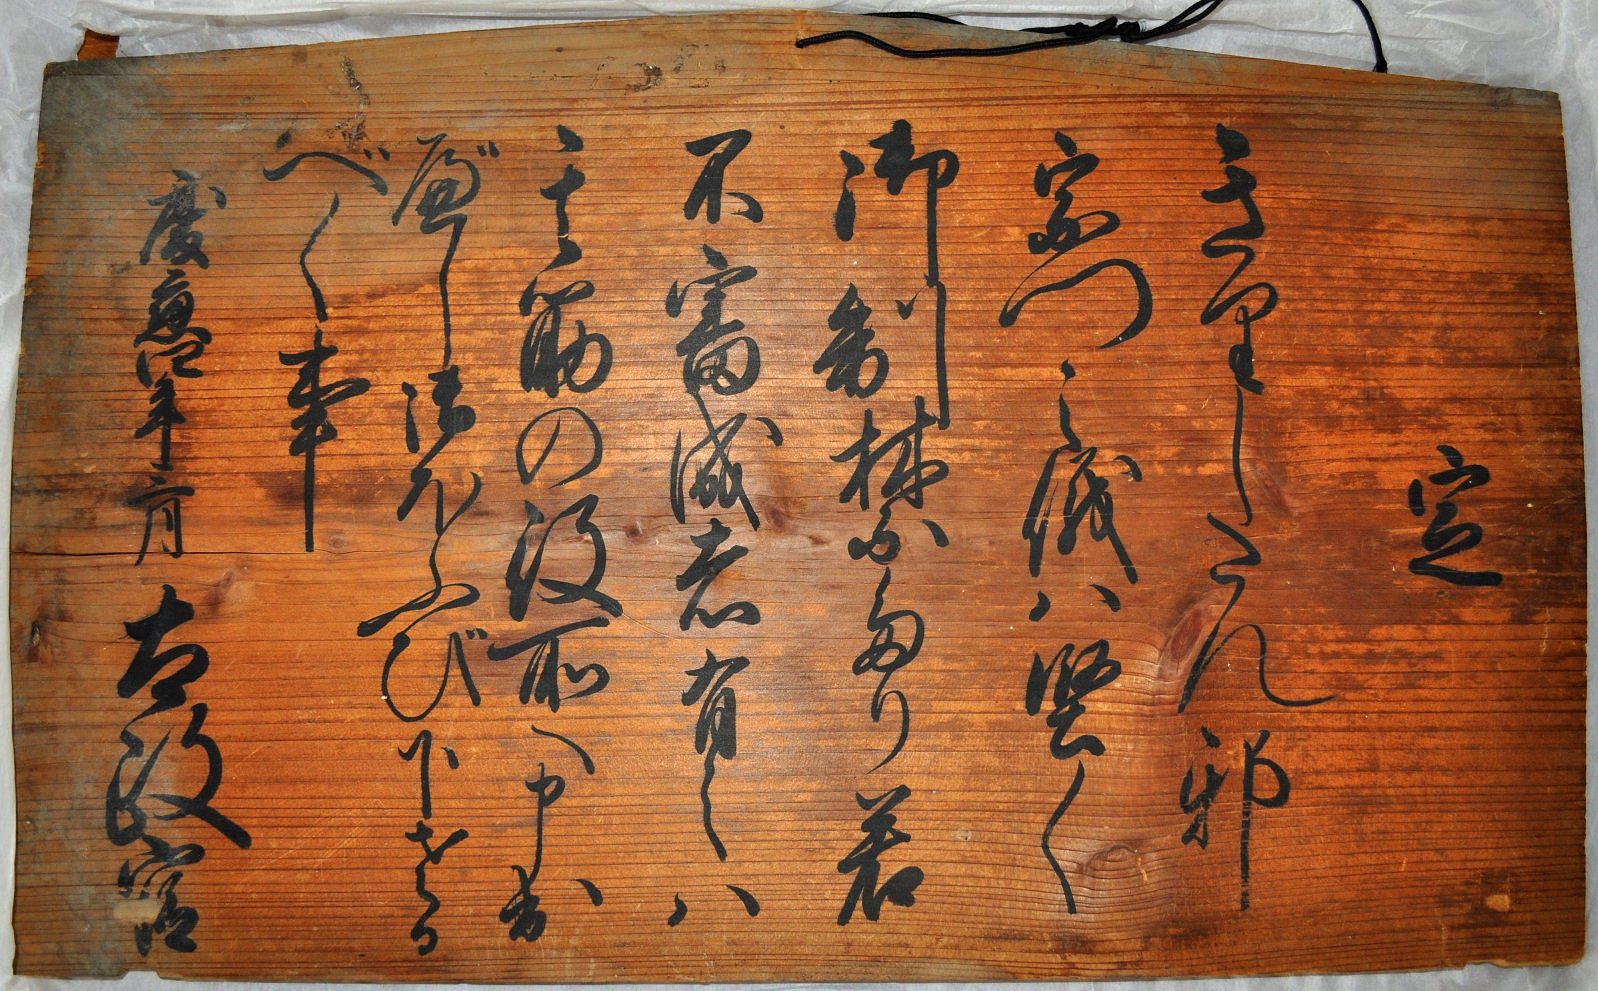 定
きりしたん邪
宗門之儀ハ堅く
御制禁たり若
不審成者有之ハ
其筋の役所へ申出
べし御ほふび下さる
べく事
慶應四年三月 太政官